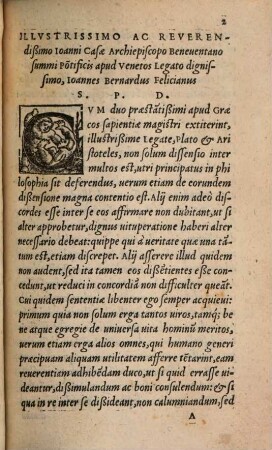 2
ILLVSTRISSIMO AC REVEREN-
dißimo Ioanni Casæ Archiepiscopo Beneuentano
summi Põtificis apud Venetos Legato dignis-
simo, Ioannes Bernardus Felicianus
S. P. D.
CVM duo præstãtißimi apud Græ
cos sapientiæ magistri extiterint,
illustrißime Legate, Plato & Ari
stoteles, non solum dissensio inter
multos est, utri principatus in phi
losophia sit deferendus, uerum etiam de eorundem
dißensione magna contentio est. Alij enim adeò dis-
cordes esse inter se eos affirmare non dubitant, ut si
alter approbetur, dignus uituperatione haberi alter
necessario debeat: quippe qui à ueritate quæ una tã-
tùm est, etiam discrepet. Alij asserere illud quidem
non audent, sed ita tamen eos dißẽtientes eße con-
cedunt, ut reduci in concordiã non difficulter queãt.
Cui quidem sententiæ libenter ego semper acquieui:
primum quia non solum erga tantos uiros, tamq; be
ne atque egregie de uniuersa uita hominũ meritos,
uerum etiam erga alios omnes, qui humano generi
præcipuam aliquam utilitatem afferre tẽtarint, eam
reuerentiam adhibẽdam duco, ut si quid errasse ui-
deantur, dißimulandum ac boni consulendum: & si
qua in re inter se dißideant, non calumniandum, sed
A